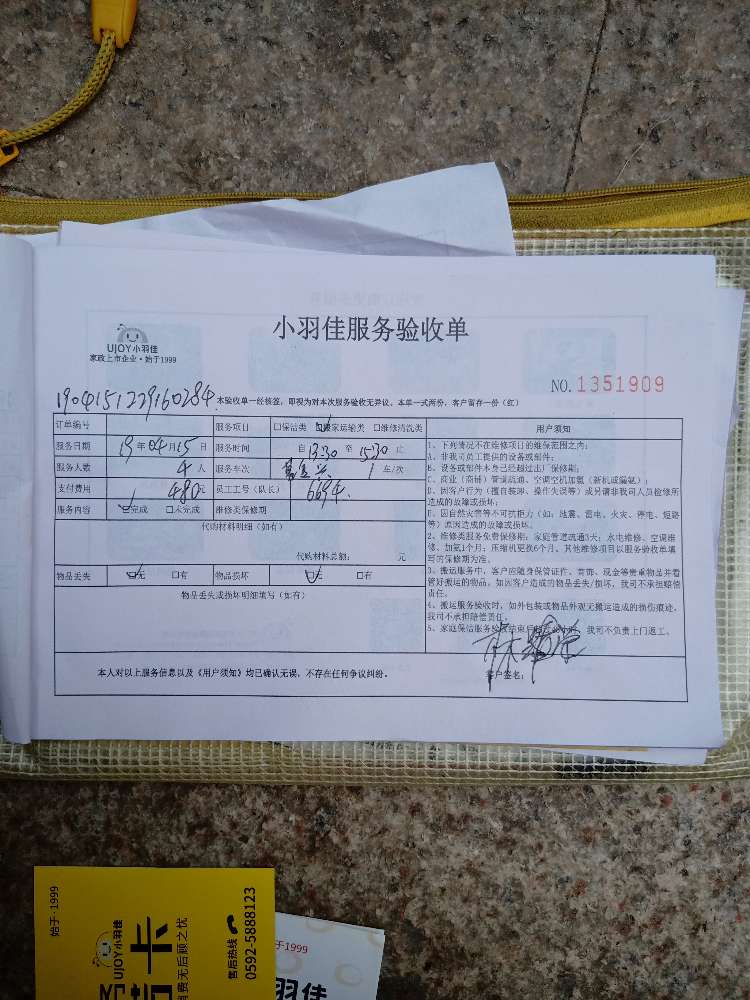 小羽佳服务验收单
UJOY小羽佳
家政上市企业·始于1999
NO. 1351909
1904151229160284
本验收单一经核签，即视为对本次服务验收无异议。本单一式两份，客户留存一份（红）
订单编号 服务项目 □保洁类 ☑搬家运输类 □维修清洗类
服务日期 19年04月15日 服务时间 自13:30至15:30止
服务人数 4人 服务车次 1车/次
支付费用 480元 员工工号（队长） 6694
服务内容 ☑完成 □未完成 维修类保修期
代购材料明细（如有）
代购材料总额： 元
物品丢失 ☑无 □有 物品损坏 ☑无 □有
物品丢失或损坏明细填写（如有）
用户须知
1、下列情况不在维修项目的维保范围之内：
A、非我司员工提供的设备或部件；
B、设备或部件本身已经超过出厂保修期；
C、商业（商铺）管道疏通、空调空机加氟（新机或漏氟）；
D、因客户行为（擅自装卸、操作失误等）或另请非我司人员检修所
造成的故障或损坏；
E、因自然灾害等不可抗拒力（如：地震、雷电、火灾、停电、短路
等）原因造成的故障或损坏。
2、维修类服务免费保修期：家庭管道疏通3天；水电维修、空调维
修、加氟1个月；压缩机更换6个月。其他维修项目以服务验收单填
写的保修期为准。
3、搬运服务中，客户应随身保管证件、首饰、现金等贵重物品并看
管好搬运的物品。如因客户造成的物品丢失/损坏，我司不承担赔偿
责任。
4、搬运服务验收时，如外包装或物品外观无搬运造成的损伤痕迹，
我司不承担赔偿责任。
5、家庭保洁服务验收结束后 我司不负责上门返工。
本人对以上服务信息以及《用户须知》均已确认无误，不存在任何争议纠纷。
客户签名：
始于·1999
UJOY小羽佳
卡
消费无后顾之忧
售后热线
0592-5888123
于1999
羽佳